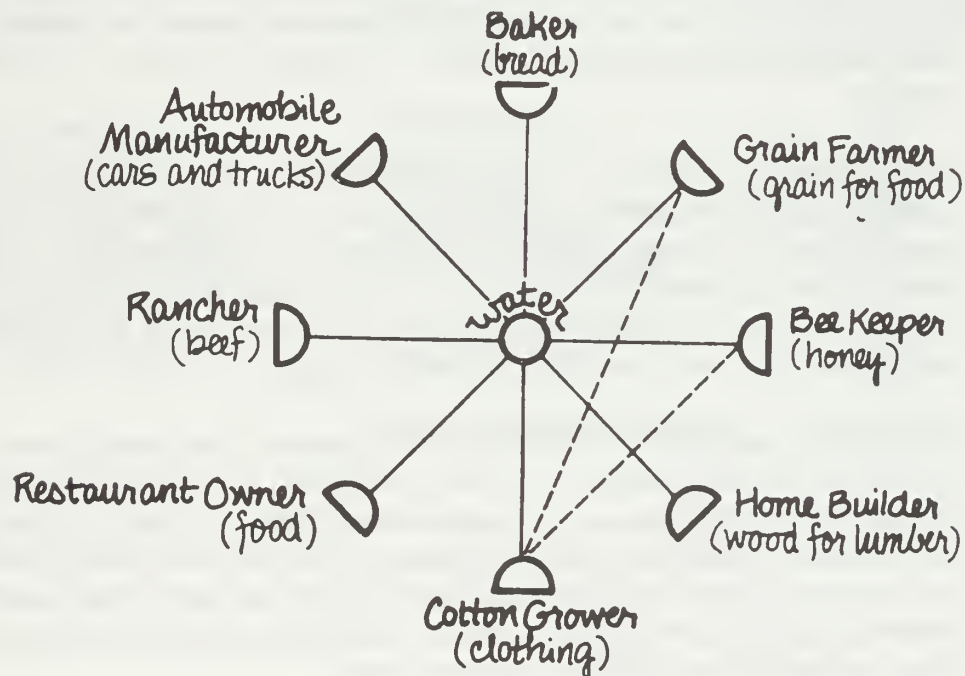 Baker
(bread)
Automobile
Manufacturer
(cars and trucks)
Grain Farmer
(grain for food)
water
Rancher
(beef)
Bee Keeper
(honey)
Restaurant Owner
(food)
Home Builder
(wood for lumber)
Cotton Grower
(clothing)